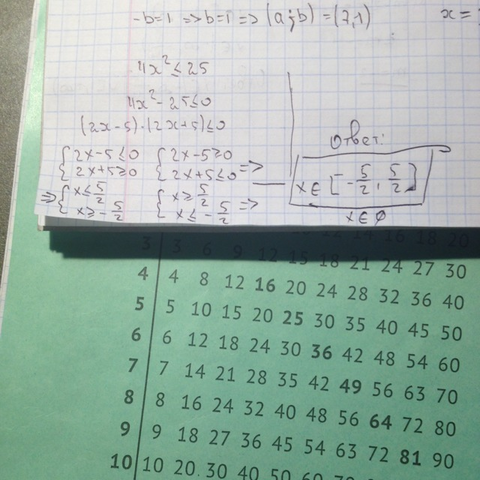 -b=1 => b=1 => (a;b) = (7,1) x =
4x² ≤ 25
4x² - 25 ≤ 0
(2x-5)·(2x+5) ≤ 0
{2x-5≤0 {2x-5≥0
{2x+5≥0 {2x+5≤0 =>
=> {x≤5/2 {x≥5/2
{x≥-5/2 {x≤-5/2 =>
Ответ:
x∈[-5/2, 5/2]
x∈∅
3 3 12 14 16 18 20
18 21 24 27 30
4 4 8 12 16 20 24 28 32 36 40
5 5 10 15 20 25 30 35 40 45 50
6 6 12 18 24 30 36 42 48 54 60
7 7 14 21 28 35 42 49 56 63 70
8 8 16 24 32 40 48 56 64 72 80
9 9 18 27 36 45 54 63 72 81 90
10 10 20 30 40 50 60